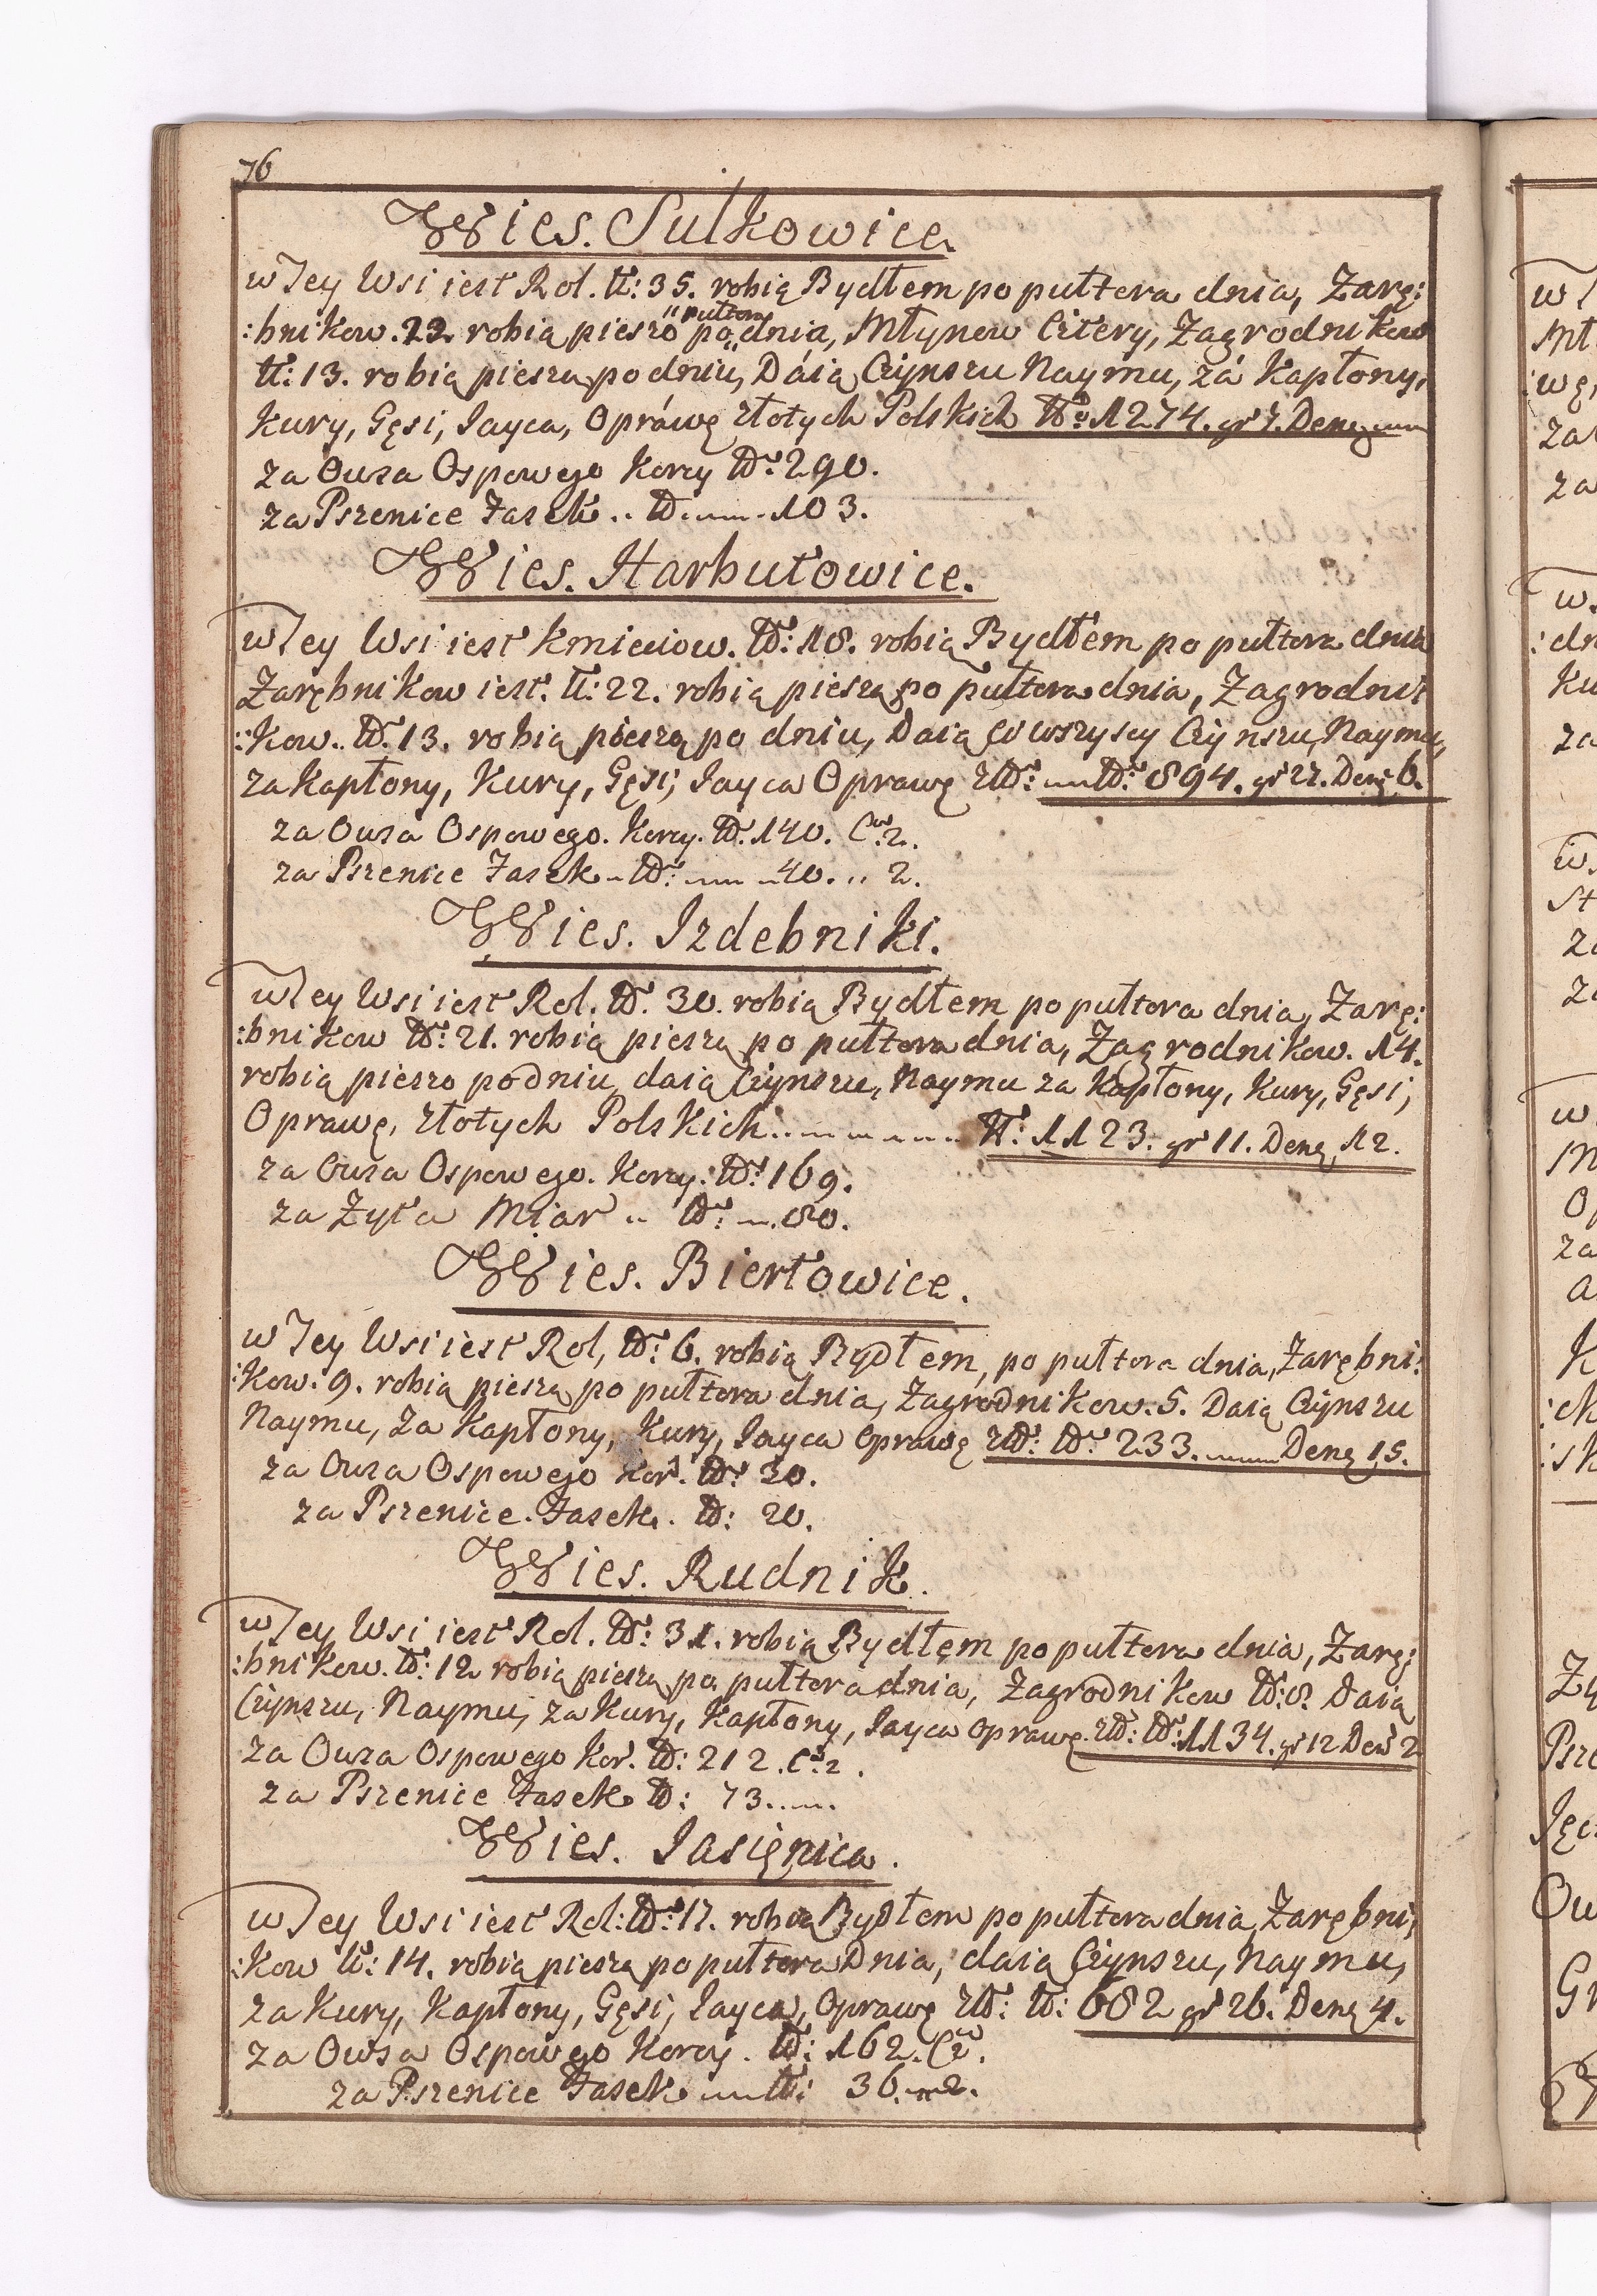 76
Wies. Sulkowice
w Tey Wsi iest Rol. tt: 35. robią Bydłem po pułtera dnia, Zarę:
:bnikow. 22. robią pieszo po pułtora dnia, Młynow Cztery, Zagrodnikow
tt: 13. robią pieszą po dniu, Daią Czynszu Naymu, za Kapłony,
Kury, Gęsi, Iayca, Oprawę złotych Polskich Nro 1274. gr 7. Deną
za Owsa Ospowego Korcy Nro 290.
za Pszenice Jasek .. N. 103.
Wies. Harbutowice.
w Tey Wsi iest Kmieciow. No: 18. robią Bydłem po pułtora dnia
Zarębnikow iest. tt: 22. robią pieszą po pułtora dnia, Zagrodni:
:kow. No. 13. robią pieszą po dniu, Daią Ci wszyscy Czynszu, Naymu,
za Kapłony, Kury, Gęsi, Iayca Oprawę złł: No: 894. gr 22. Deną 6.
za Owsa Ospowego. Korcy. No. 140. Cw. 2.
za Pszenice Jasek No: 40. .. 2.
Wies. Izdebniki.
w Tey Wsi iest Rol. No. 30. robią Bydłem po pułtora dnia, Zarę:
:bnikow No: 21. robią pieszą po pułtora dnia, Zagrodnikow. 14.
robią pieszo po dniu, daią Czynszu, Naymu za Kapłony, Kury, Gęsi,
Oprawę, złotych Polskich tt: 1123. gr 11. Deną 12.
za Owsa Ospowego. Korcy: No: 169.
za Zyta Miar .. No: 80.
Wies. Biertowice.
w Tey Wsi iest Rol, No: 6. robią Bydłem, po pułtora dnia, Zarębni:
:kow. 9. robią pieszą po pułtora dnia, Zagrodnikow. 5. Daią Czynszu
Naymu, Za Kapłony, Kury, Iayca Oprawę złł: No: 233. Deną 15.
za Owsa Ospowego Kor. No: 30.
za Pszenice. Jasek. N: 20.
Wies. Rudnik.
w Tey Wsi iest Rol. No: 31. robią Bydłęm po pułtora dnia, Zarę:
:bnikow. No: 12 robią pieszą po pułtora dnia, Zagrodnikow No: 8. Daią
Czynszu, Naymu, za Kury, Kapłony, Iayca Oprawę. złł: No: 1134. gr 12 Den 2
za Owsa Ospowego Kor. N: 212. Cw. 2.
za Pszenice Jasek N: 73.
Wies. Iasięnica.
w Tey Wsi iest Rol: No: 17. robią Bydłem po pułtora dnia, Zarębni:
:kow tt: 14. robią pieszą po pułtora Dnia, daią Czynszu, Naymu,
za Kury, Kapłony, Gęsi, Iayca, Oprawę złł: N: 682 gr 26. Deną 4.
za Owsa Ospowego Korcy. No: 162. Cw.
za Pszenice Jasek N: 36. 2.